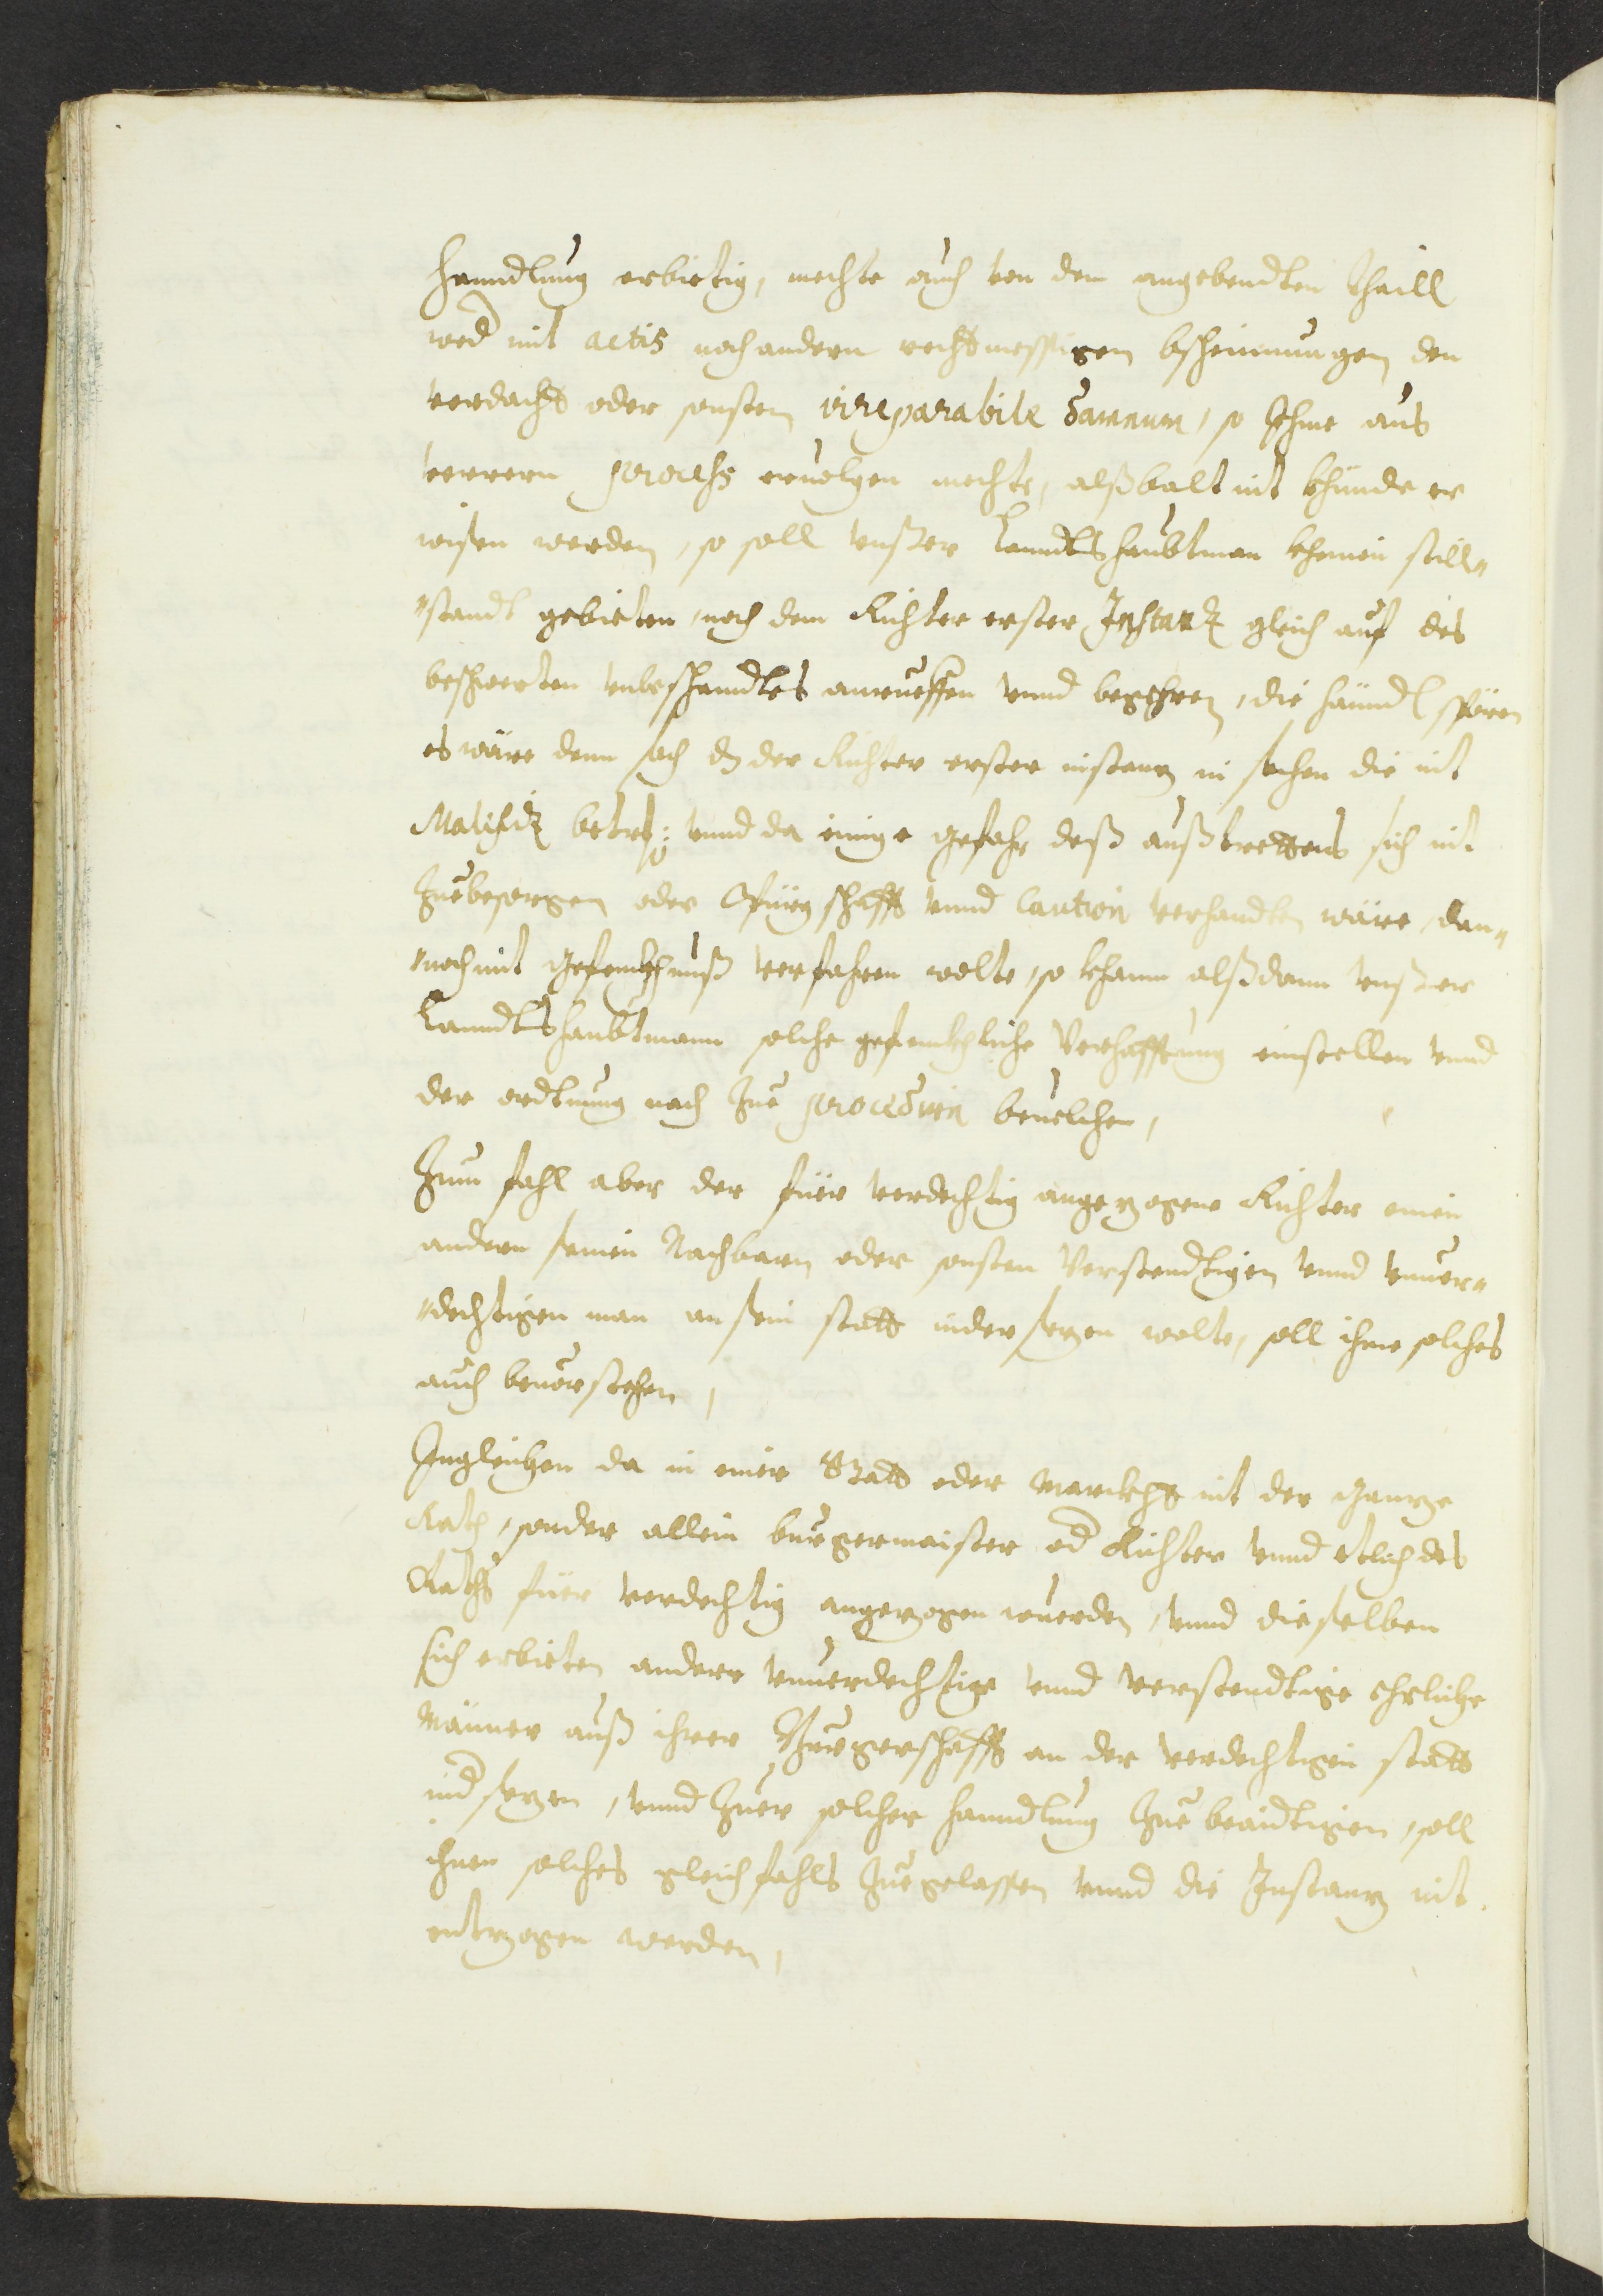 Hanndlung erbietig, mechte auch von dem angebendten thaill
wed mit actis noch andern rechtmessigen bscheinnungen den
verdacht oder sonsten irreparabile damnum, so Ihme aus
verrern process ervolgen mechte, alßbalt nit khünde er
wisen werden, so soll unßer Lanndtshaubtman kheinen still„
„standt gebieten, noch dem Richter erster Instantz gleich auf des
beschwerten anrueffen unnd begehren, die Hanndl spören
es wäre denn sach dz der Richter erster instanz in sachen die nit
Malefitz betrf: unnd da einige gefahr deß außtrettens sich nit
Zuebesorgen oder Pürgschafft unnd Caution verhandten wäre, dan„
„noch mit gefenkhnuß verfahren wolte, so khann alßdann unßer
Lanndtshaubtmann solche gefenkhliche Verhafftung einstellen unnd
der ordtnung nach Zue procedirn bevelchen,
Zum fahl aber der füer verdechtig angezogene Richter einen
andern seinen Nachbarn oder sonsten Verstendtigen unnd unver„
„dechtigen man an sein statt nidersezen wolte, soll ihme solches
auch bevorstehen,
Ingleichen da in einer Statt oder Marckht nit der ganze
Rath, sonder allein burgermaister od Richter unnd etlich des
Raths füer verdechtig angezogen wuerden, unnd dieselben
sich erbieten andere unverdechtige unnd verstendtige ehrliche
Männer auß ihrer Burgerschafft an der verdechtigen statt
nid sezen, unnd Zuer solcher hanndlung Zue beaidtigen, soll
ihnen solches gleichfahls Zuegelassen unnd die Instanz nit
entzogen werden,